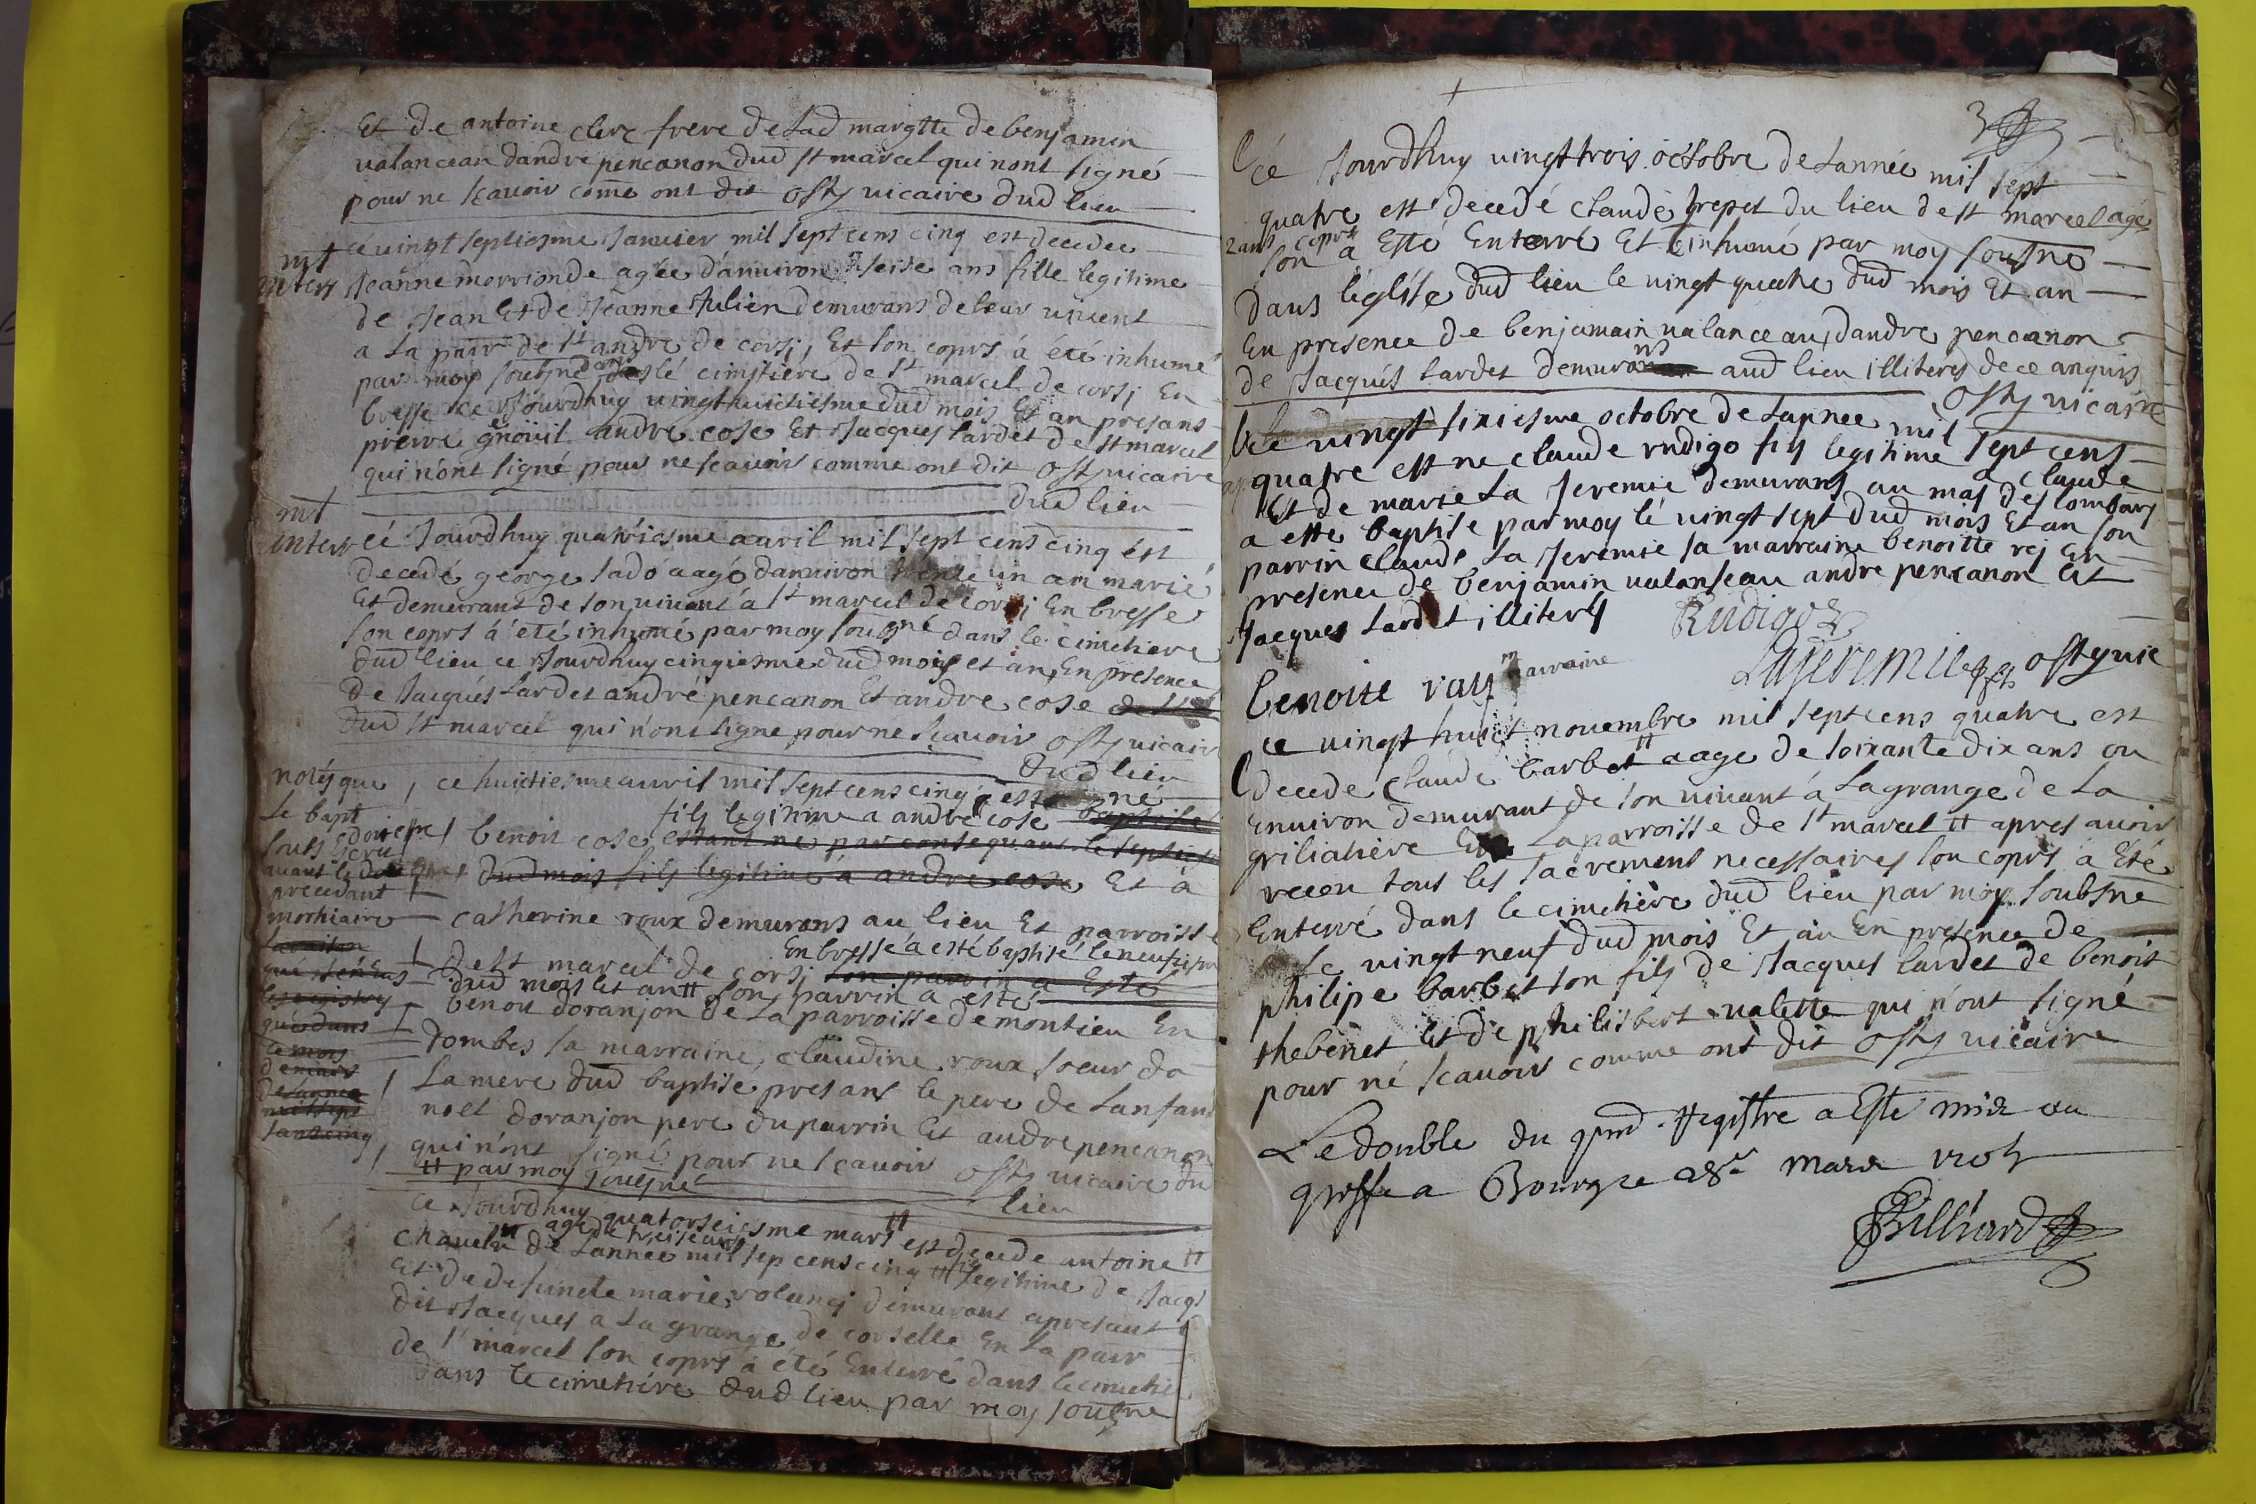 Et de antoine clerc frere de lad margtte de benjamin
valancean dandre pencanon dud st marcel qui nont signé
pour ne scavoir come ont dit osty vicaire dud lieu
mt
ce vingt septiesme janvier mil sept cens cinq est decedee
Jeanne morrionde agée d'anviron seise ans fille legitime
de Jean Et de Jeanne Julien demurans de leur vivent
a la parr de st andre de corsj, Et son coprs à été inhumé
par moy soubsné dans lé cimstiere de st marcel de corsj En
bresse ce Jourdhuy vingt huictiesme dud mois Et an présans
prerre genouil andre cose Et Jacques lardet de st marcel
qui n'ont signé pour ne scavoir comme ont dit osty vicaire
dud lieu
mt
interr
cé Jourdhuy quatriesme avril mil sept cens cinq ést
decedé george sado aagé danviron trente un an marié
Et demurant de son vivant à st marcel de corsj En bresse
son coprs á été inhumé par moy soubsné dans le cimetiere
dud lieu ce Jourdhuy cinqiesme dud mois et an, En presence
de Jacqués lardet andré pencanon Et andre cose
dud st marcel qui n'ont signe pour ne scavoir osty vicaire
dud lieu
notés que
le bapt
souts scru
doit estre
avant le
precedant
mortuaire
ce huictiesme avril mil sept cens cinq est né
fils legitime a andre cose baptisé
benoit cose estant né par consequant le septies
dud mois fils legitime à andre cose Et à
catherine roux demurans au lieu Et parroisse
En bresse à esté baptisé le neufiesme
de st marcel de corsj son parrin a Esté
dud mois et an tt son parrin a esté
benoit doranjon de la parroisse de montieu En
dombes sa marraine, claudine roux soeur da
la mere dud baptisé presans le pere de lanfant
noel doranjon pere du parrin Et andre pencanon
qui n'ont signé pour ne scavoir osty vicaire du
tt par moy soubsné
lieu
ce Jourdhuy quatorseiesme mars tt est decede antoine tt
agé de treise ans
de lannee mil sep cens cinq tt fils legitime de Jacqs
Et de defuncte marie volancj demurant apresant
dit Jacques a la grange de corselle En la parr
de st marcel son coprs à été Enterré dans le cimetiere
dans le cimetiére dud lieu par moy soubsne
3
cé Jourdhuy vingt trois octobre de lannée mil sept
quatre est decedé claude trepet du lieu de st marcel agé
2 ans
son coprs a Esté Enterré Et inhumé par moy soubsné
dans léglise dud lieu le vingt quatre dud mois Et an
En presence de benjamain valanceau, dandre pencanon
de Jacqués lardet demurans aud lieu illiterés de ce anquis
osty vicaire
le vingt sixiesme octobre de lannee mil sept cens
quatre est ne claude rudigo fils legitime a claude
Et de marie la Jeremie demurans au mas des lombars
a este baptise par moy lé vingt sept dud mois Et an son
parrin claude la Jeremie sa marraine benoitte rej En
presence de benjamin valanseau andre pencanon Et
Jacques lardet illiterés
Rudigoz
benoite ray marraine
Lajeremie
osty vic
ce vingt huict novembre mil sept cens quatre est
decede claude barbet tt aage de soixante dix ans ou
Environ demurant de son vivant á la grange de la
griliatiére En la parroisse de st marcel tt apres avoir
receu tous les sacremens necessaires son coprs à Eté
Enterré dans le cimetiére dud lieu par moy soubsne
le vingt neuf dud mois Et an En presence de
philipe barbet son fils de Jacques lardet de benoit
thebenet Et de philisbert valette qui n'ont signé
pour né scavoir comme ont dit osty vicaire
Le double du pnt Registre a Esté mis au
greffe a Bourg ce 28e mars 1705
Billiard